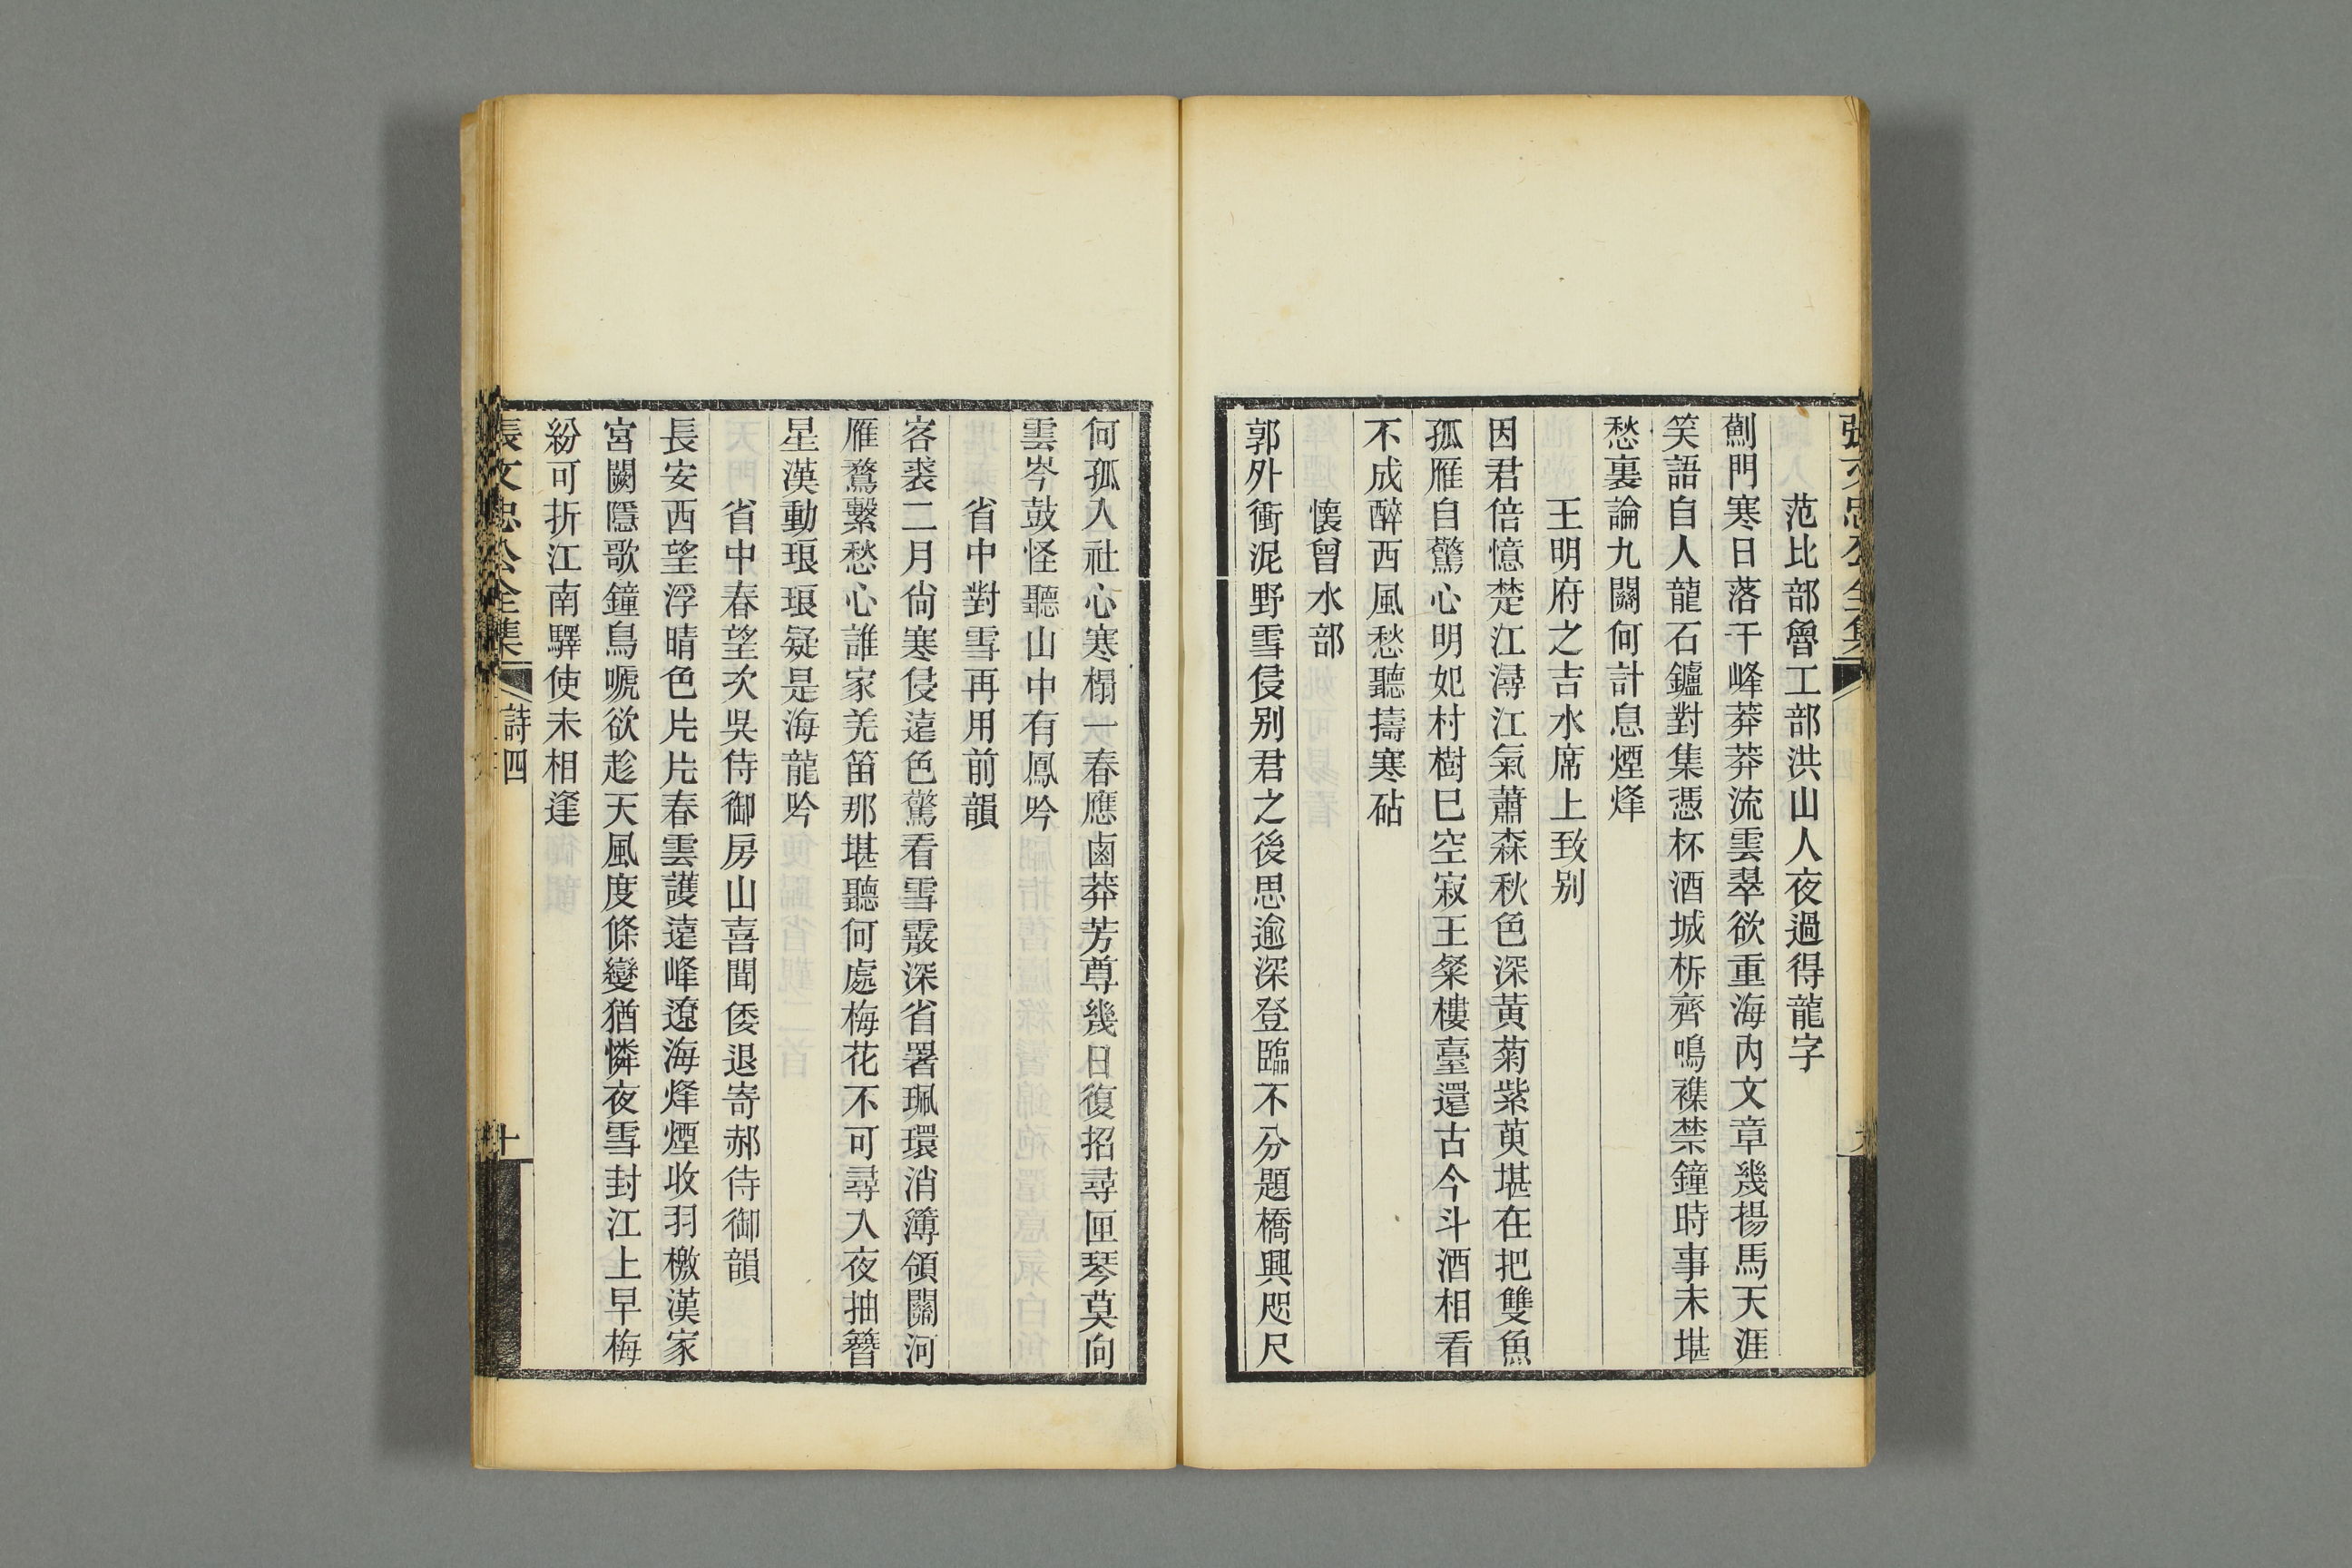 張文忠公全集
范比部魯工部洪山人夜過得龍字
薊門寒日落千峰莽莽流雲翠欲重海內文章幾揚馬天涯
笑語自人龍石鑪對集憑杯酒城柝齊鳴襍禁鐘時事未堪
愁裏論九關何計息煙烽
王明府之吉水席上致別
因君倍憶楚江潯江氣蕭森秋色深黃菊紫萸堪在把雙魚
孤雁自驚心明妃村樹已空寂王粲樓臺還古今斗酒相看
不成醉西風愁聽擣寒砧
懷曾水部
郭外衝泥野雪侵別君之後思逾深登臨不分題橋興咫尺
何孤入社心寒榻一春應鹵莽芳尊幾日復招尋匣琴莫向
雲岑鼓怪聽山中有鳳吟
省中對雪再用前韻
客裘二月尙寒侵遠色驚看雪霰深省署珮環消簿領關河
雁鶩繫愁心誰家羌笛那堪聽何處梅花不可尋入夜抽簪
星漢動琅琅疑是海龍吟
省中春望次吳侍御房山喜聞倭退寄郝侍御韻
長安西望浮晴色片片春雲護遠峰遼海烽煙收羽檄漢家
宮闕隱歌鐘鳥嘷欲趁天風度條變猶憐夜雪封江上早梅
紛可折江南驛使未相逢
張文忠公全集
詩四
十